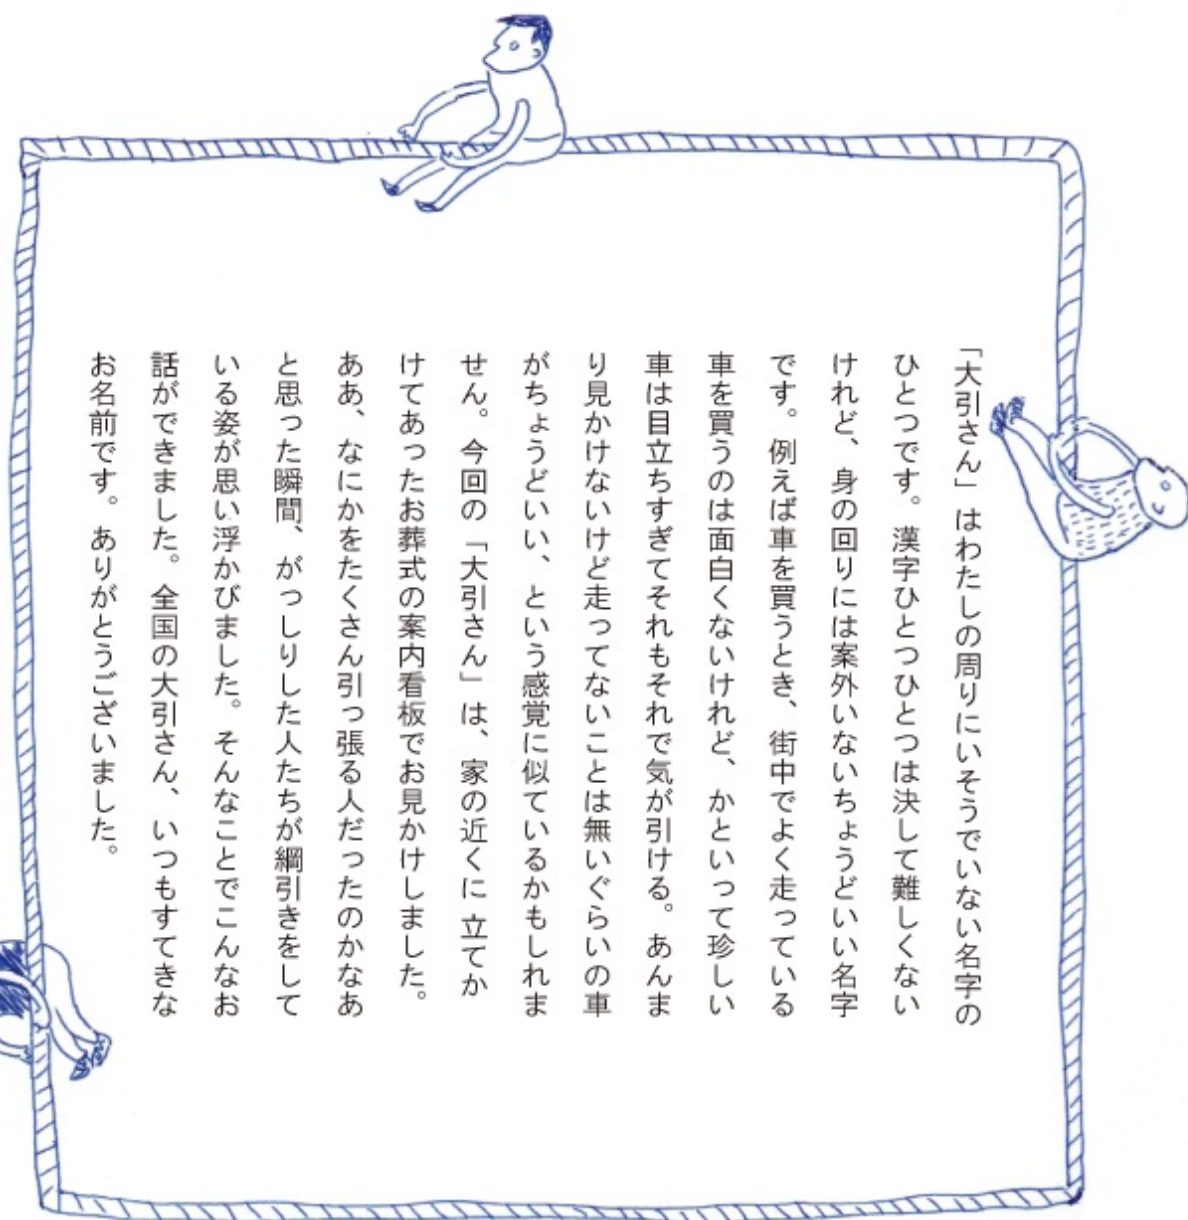 「大引さん」はわたしの周りにいそうでいない名字の
ひとつです。漢字ひとつひとつは決して難しくない
けれど、身の回りには案外いないちょうどいい名字
です。例えば車を買うとき、街中でよく走っている
車を買うのは面白くないけれど、かといって珍しい
車は目立ちすぎてそれもそれで気が引ける。あんま
り見かけないけど走ってないことは無いぐらいの車
がちょうどいい、という感覚に似ているかもしれま
せん。今回の「大引さん」は、家の近くに立てか
けてあったお葬式の案内看板でお見かけしました。
ああ、なにかをたくさん引っ張る人だったのかなあ
と思った瞬間、がっしりした人たちが綱引きをして
いる姿が思い浮かびました。そんなことでこんなお
話ができました。全国の大引さん、いつもすてきな
お名前です。ありがとうございました。